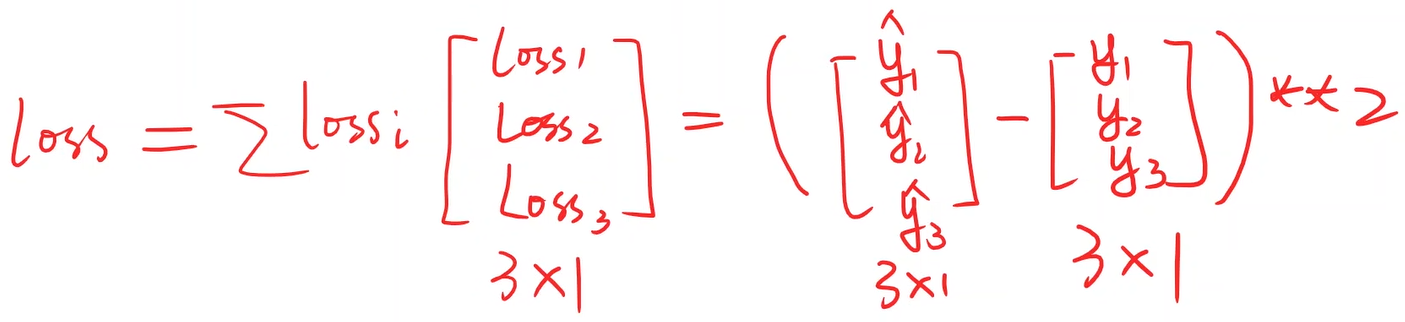 loss = ∑ lossi [loss1 loss2 loss3] = ([ŷ1 ŷ2 ŷ3] - [y1 y2 y3]) ** 2
3×1 3×1 3×1